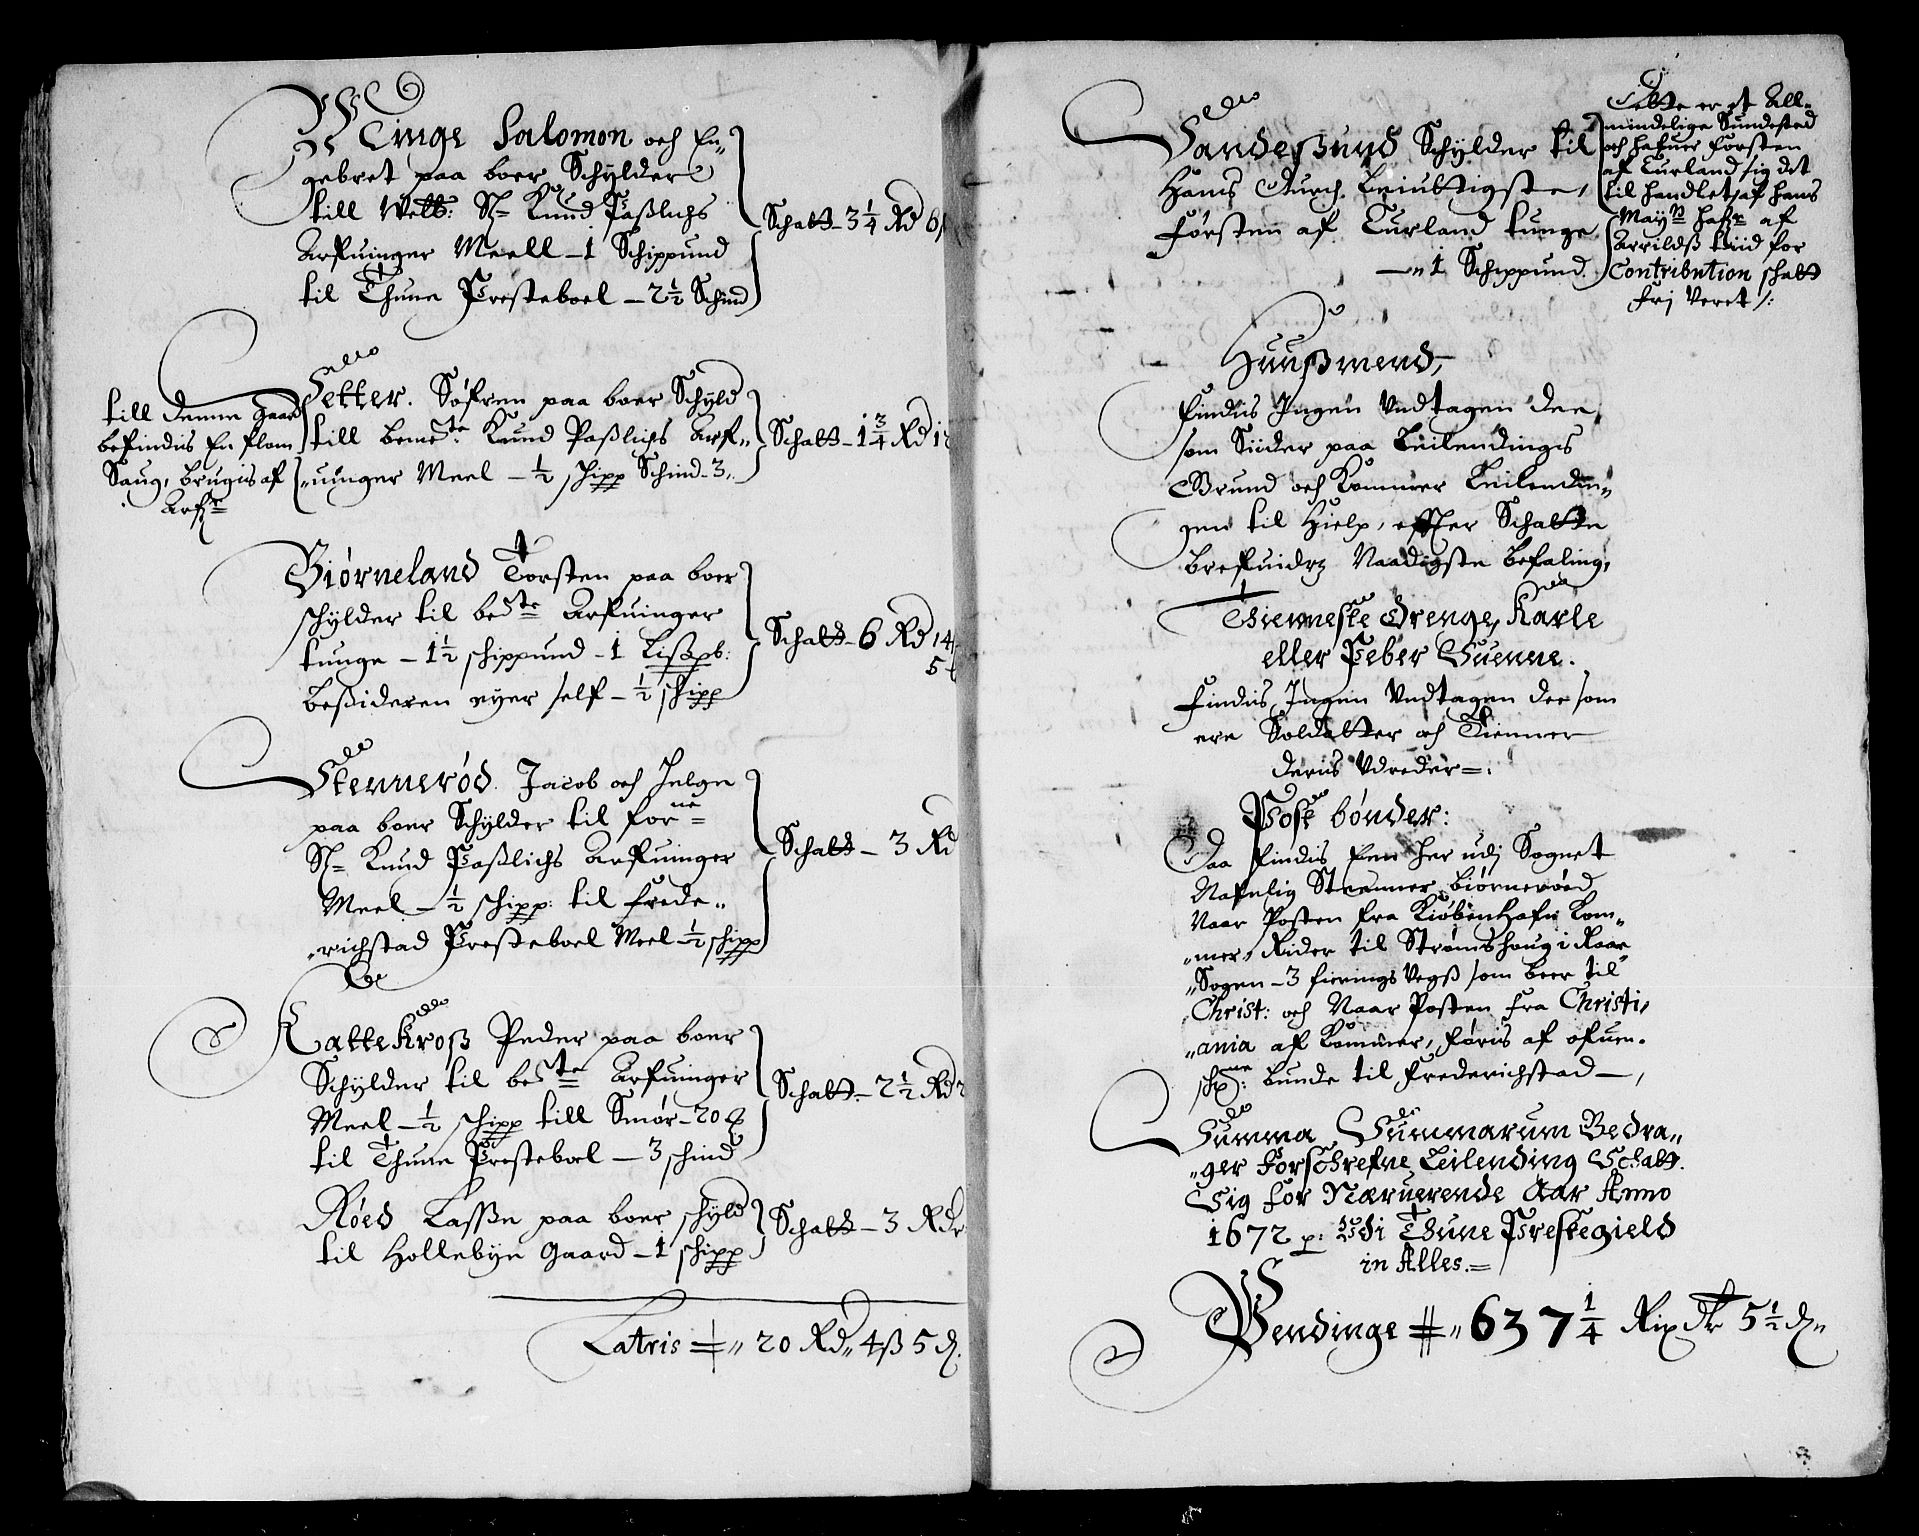 Winge Salomon och En„
gebret paa boer Schylder
till Welb: Sl= Knud Paßlichs
Arfuinger Meell – 1 Schippund
til Thune Presteboel – 2½ Schind
Schatt – 3¼ Rd 6
till denne gaard
befindis En flom
Saug, brugis af
Arf:ne
Setter. Søfren paa boer Schyld
till bemte: Knud Paßlichs Arf„
„uinger Meel – ½ schipp Schind – 3„
Schatt – 1¾ Rd 12
Biørneland Torsten paa boer
schylder til bete Arfuinger
tunge – 1½ schippund – 1 Lißpb:
beßideren eyer self – ½ schipp
Schatt – 6 Rd 14
5
Stennerød. Jacob och Helge
paa boer Schylder til forne
Sl= Knud Paßlichs Arfuinger
Meel – ½ schipp: til frede„
„richstad Presteboel Meel – ½ schipp
Schatt – 3 Rd
Kattekroß Peder paa boer
Schylder til bete Arfuinger
Meel – ½ schipp till Smør – 20 ℔
til Thune Presteboel – 3 schind
Schatt. – 2½ Rd 2
Røed Laſße paa boer schyld
til Hollebye Gaard – 1 schipp
Schatt – 3 Rdr
Latris =„ 20 Rd„ 4 ß 5 d.
Sandeßund Schylder til
Hans Durch. Leiuttigste,
Førsten af Curland tunge
—„ 1 Schippund.
Dette er et All„
mindelige Sundested
och hafuer førsten
af Curland sig det
til handlet, af hans
Maytt hafr af
Arrildß tiid for
Contribution schatt
frj Veret /:
Huußmend,
findis Ingen Vndtagen dee,
som Siider paa Leilendingis
Grund och Kommer Leilendin„
gen til Hielp, effter Schatte
brefuidrz Naadigste befaling,
Thienneste Drenge, Karle
eller Peber Suenne.
Findis Ingen Vndtagen dee som
ere Soldatter och Tienner
deris Vdreder =.
Post bønder:
Daa findis Een her udj Sognet
Nafnlig Stenner Biørnerøed
Naar Posten fra Kiøbenhafn Kom„
„mer, Rider til Strømshaug i Raae
„Sogen – 3 fierings Vegß som beer til
Christ: och Naar Posten fra Christi,
„ania af Kommer, føris af ofuen„
schne: bunde til Frederichstad —,
Summa Summarum Bedra„
„ger Forschrefne Leilending Schatt.
Sig for Nærwerende Aar Anno
1672 p: Udi Thune Prestegield
in Alles. =
Pendinge =„ 637¼ Rixdlr 5½ d„